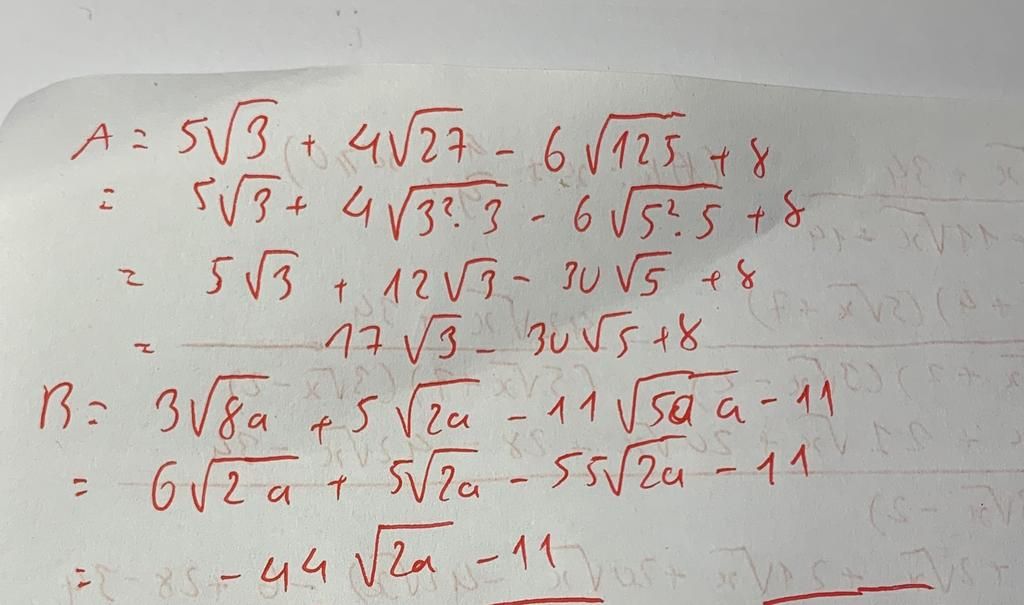 A = 5√3 + 4√27 - 6√125 + 8
= 5√3 + 4√3².3 - 6√5².5 + 8
= 5√3 + 12√3 - 30√5 + 8
= 17√3 - 30√5 + 8
B = 3√8a + 5√2a - 11√50a - 11
= 6√2a + 5√2a - 55√2a - 11
= -44√2a - 11